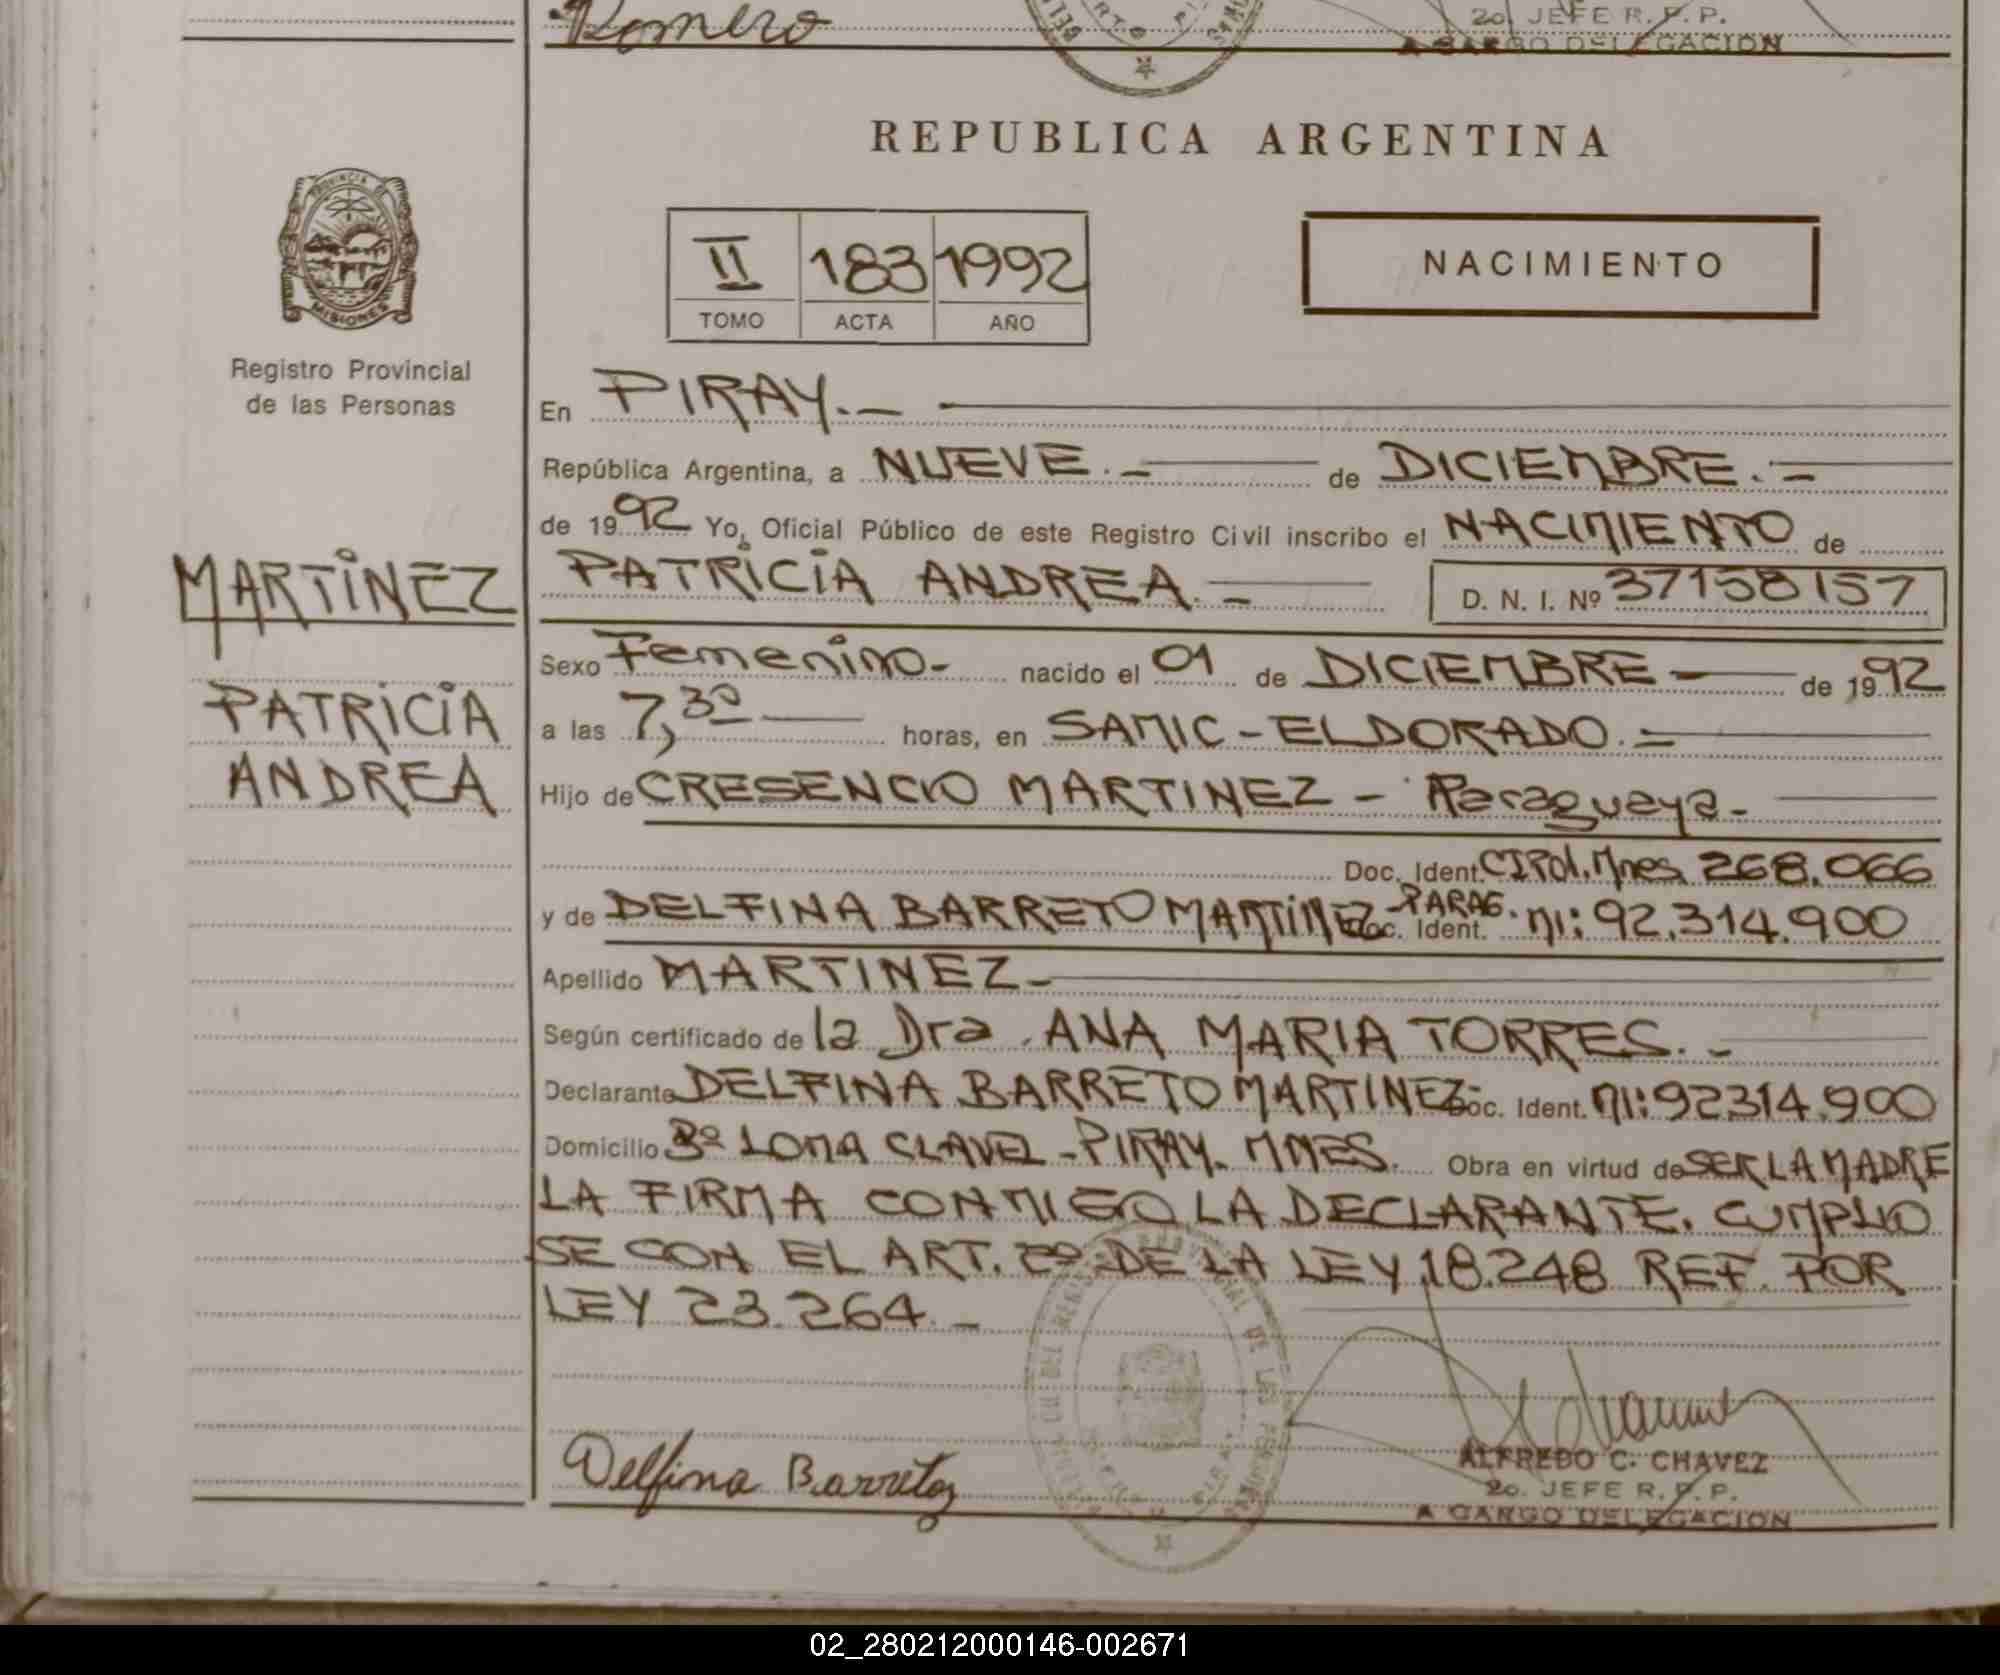 Romero
2o. JEFE R. P. P.
A CARGO DELEGACION
REPUBLICA ARGENTINA
PROVINCIA DE
MISIONES
Registro Provincial
de las Personas
II 183 1992
TOMO ACTA AÑO
NACIMIENTO
En PIRAY.—
República Argentina, a NUEVE.— de DICIEMBRE.—
de 1992 Yo, Oficial Público de este Registro Civil inscribo el NACIMIENTO de
MARTINEZ
PATRICIA
ANDREA
PATRICIA ANDREA.— D. N. I. Nº 37158157
Sexo Femenino- nacido el 01 de DICIEMBRE — de 1992
a las 7,30 — horas, en SAMIC-ELDORADO.—
Hijo de CRESENCIO MARTINEZ - Paraguaya-
Doc. Ident. CIPol.Mnes. 268.066
y de DELFINA BARRETO MARTINEZ-PARAG. Doc. Ident. MI: 92.314.900
Apellido MARTINEZ-
Según certificado de la Dra. ANA MARIA TORRES.-
Declarante DELFINA BARRETO MARTINEZ- Doc. Ident. MI:92314.900
Domicilio Bº LOMA CLAVEL-PIRAY. MNES. Obra en virtud de SER LA MADRE
LA FIRMA CONMIGO LA DECLARANTE. CUMPLIO
SE CON EL ART. 2º DE LA LEY 18.248 REF. POR
LEY 23.264.-
Delfina Barreto
ALFREDO C. CHAVEZ
2o. JEFE R. P. P.
A CARGO DELEGACION
02_280212000146-002671